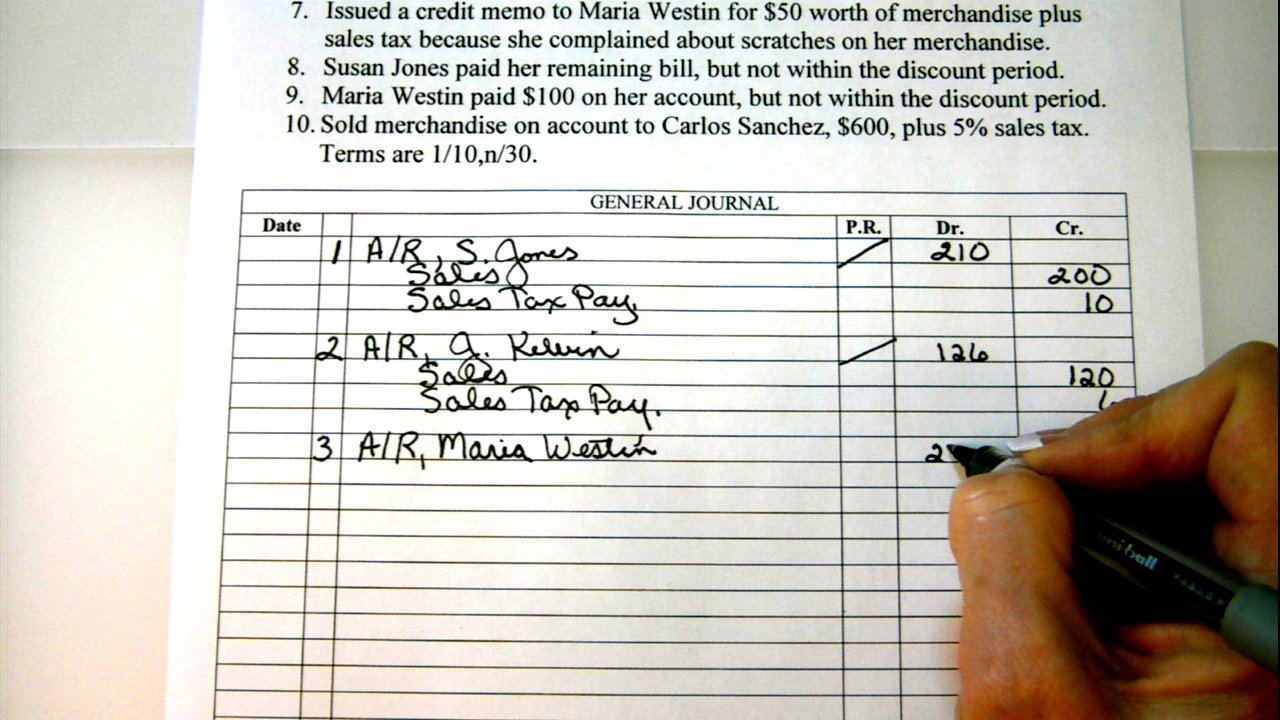 7. Issued a credit memo to Maria Westin for $50 worth of merchandise plus
sales tax because she complained about scratches on her merchandise.
8. Susan Jones paid her remaining bill, but not within the discount period.
9. Maria Westin paid $100 on her account, but not within the discount period.
10. Sold merchandise on account to Carlos Sanchez, $600, plus 5% sales tax.
Terms are 1/10,n/30.
GENERAL JOURNAL
Date P.R. Dr. Cr.
1 A/R, S. Jones 210
Sales 200
Sales Tax Pay. 10
2 A/R, J. Kelvin 126
Sales 120
Sales Tax Pay.
3 A/R, Maria Westin 2
uniball